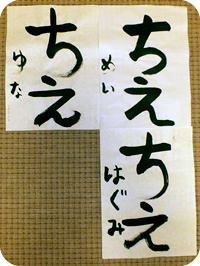 ちえ
めい
ちえ
ゆな
ちえ
はぐみ